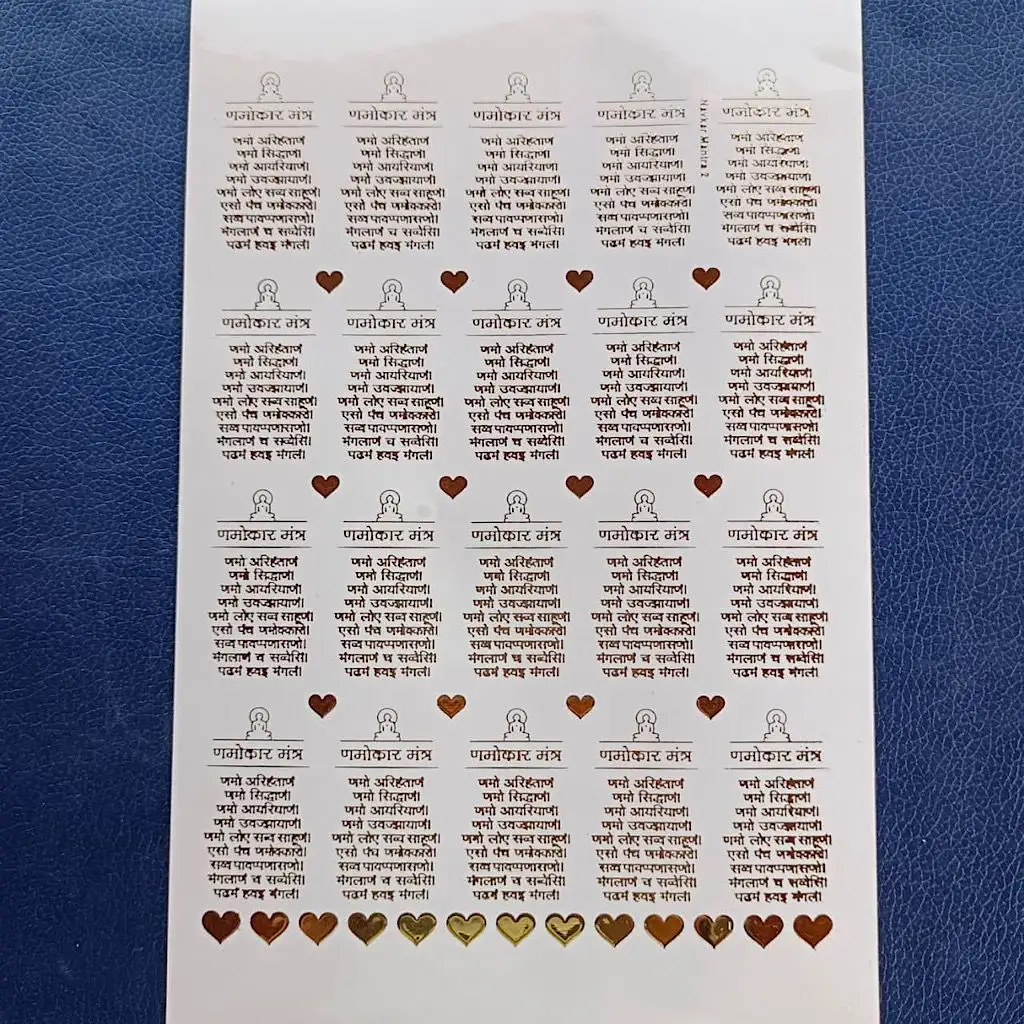 णमोकार मंत्र
णमो अरिहंताणं
णमो सिद्धाणं।
णमो आयरियाणं।
णमो उवज्झायाणं।
णमो लोए सव्व साहूणं।
एसो पंच णमोक्कारो।
सव्व पावप्पणासणो।
मंगलाणं च सव्वेसिं।
पढमं हवइ मंगलं।
णमोकार मंत्र
णमो अरिहंताणं
णमो सिद्धाणं।
णमो आयरियाणं।
णमो उवज्झायाणं।
णमो लोए सव्व साहूणं।
एसो पंच णमोक्कारो।
सव्व पावप्पणासणो।
मंगलाणं च सव्वेसिं।
पढमं हवइ मंगलं।
णमोकार मंत्र
णमो अरिहंताणं
णमो सिद्धाणं।
णमो आयरियाणं।
णमो उवज्झायाणं।
णमो लोए सव्व साहूणं।
एसो पंच णमोक्कारो।
सव्व पावप्पणासणो।
मंगलाणं च सव्वेसिं।
पढमं हवइ मंगलं।
णमोकार मंत्र
णमो अरिहंताणं
णमो सिद्धाणं।
णमो आयरियाणं।
णमो उवज्झायाणं।
णमो लोए सव्व साहूणं।
एसो पंच णमोक्कारो।
सव्व पावप्पणासणो।
मंगलाणं च सव्वेसिं।
पढमं हवइ मंगलं।
Navkar Mantra 2
णमोकार मंत्र
णमो अरिहंताणं
णमो सिद्धाणं।
णमो आयरियाणं।
णमो उवज्झायाणं।
णमो लोए सव्व साहूणं।
एसो पंच णमोक्कारो।
सव्व पावप्पणासणो।
मंगलाणं च सव्वेसिं।
पढमं हवइ मंगलं।
णमोकार मंत्र
णमो अरिहंताणं
णमो सिद्धाणं।
णमो आयरियाणं।
णमो उवज्झायाणं।
णमो लोए सव्व साहूणं।
एसो पंच णमोक्कारो।
सव्व पावप्पणासणो।
मंगलाणं च सव्वेसिं।
पढमं हवइ मंगलं।
णमोकार मंत्र
णमो अरिहंताणं
णमो सिद्धाणं।
णमो आयरियाणं।
णमो उवज्झायाणं।
णमो लोए सव्व साहूणं।
एसो पंच णमोक्कारो।
सव्व पावप्पणासणो।
मंगलाणं च सव्वेसिं।
पढमं हवइ मंगलं।
णमोकार मंत्र
णमो अरिहंताणं
णमो सिद्धाणं।
णमो आयरियाणं।
णमो उवज्झायाणं।
णमो लोए सव्व साहूणं।
एसो पंच णमोक्कारो।
सव्व पावप्पणासणो।
मंगलाणं च सव्वेसिं।
पढमं हवइ मंगलं।
णमोकार मंत्र
णमो अरिहंताणं
णमो सिद्धाणं।
णमो आयरियाणं।
णमो उवज्झायाणं।
णमो लोए सव्व साहूणं।
एसो पंच णमोक्कारो।
सव्व पावप्पणासणो।
मंगलाणं च सव्वेसिं।
पढमं हवइ मंगलं।
णमोकार मंत्र
णमो अरिहंताणं
णमो सिद्धाणं।
णमो आयरियाणं।
णमो उवज्झायाणं।
णमो लोए सव्व साहूणं।
एसो पंच णमोक्कारो।
सव्व पावप्पणासणो।
मंगलाणं च सव्वेसिं।
पढमं हवइ मंगलं।
णमोकार मंत्र
णमो अरिहंताणं
णमो सिद्धाणं।
णमो आयरियाणं।
णमो उवज्झायाणं।
णमो लोए सव्व साहूणं।
एसो पंच णमोक्कारो।
सव्व पावप्पणासणो।
मंगलाणं च सव्वेसिं।
पढमं हवइ मंगलं।
णमोकार मंत्र
णमो अरिहंताणं
णमो सिद्धाणं।
णमो आयरियाणं।
णमो उवज्झायाणं।
णमो लोए सव्व साहूणं।
एसो पंच णमोक्कारो।
सव्व पावप्पणासणो।
मंगलाणं च सव्वेसिं।
पढमं हवइ मंगलं।
णमोकार मंत्र
णमो अरिहंताणं
णमो सिद्धाणं।
णमो आयरियाणं।
णमो उवज्झायाणं।
णमो लोए सव्व साहूणं।
एसो पंच णमोक्कारो।
सव्व पावप्पणासणो।
मंगलाणं च सव्वेसिं।
पढमं हवइ मंगलं।
णमोकार मंत्र
णमो अरिहंताणं
णमो सिद्धाणं।
णमो आयरियाणं।
णमो उवज्झायाणं।
णमो लोए सव्व साहूणं।
एसो पंच णमोक्कारो।
सव्व पावप्पणासणो।
मंगलाणं च सव्वेसिं।
पढमं हवइ मंगलं।
णमोकार मंत्र
णमो अरिहंताणं
णमो सिद्धाणं।
णमो आयरियाणं।
णमो उवज्झायाणं।
णमो लोए सव्व साहूणं।
एसो पंच णमोक्कारो।
सव्व पावप्पणासणो।
मंगलाणं च सव्वेसिं।
पढमं हवइ मंगलं।
णमोकार मंत्र
णमो अरिहंताणं
णमो सिद्धाणं।
णमो आयरियाणं।
णमो उवज्झायाणं।
णमो लोए सव्व साहूणं।
एसो पंच णमोक्कारो।
सव्व पावप्पणासणो।
मंगलाणं च सव्वेसिं।
पढमं हवइ मंगलं।
णमोकार मंत्र
णमो अरिहंताणं
णमो सिद्धाणं।
णमो आयरियाणं।
णमो उवज्झायाणं।
णमो लोए सव्व साहूणं।
एसो पंच णमोक्कारो।
सव्व पावप्पणासणो।
मंगलाणं च सव्वेसिं।
पढमं हवइ मंगलं।
णमोकार मंत्र
णमो अरिहंताणं
णमो सिद्धाणं।
णमो आयरियाणं।
णमो उवज्झायाणं।
णमो लोए सव्व साहूणं।
एसो पंच णमोक्कारो।
सव्व पावप्पणासणो।
मंगलाणं च सव्वेसिं।
पढमं हवइ मंगलं।
णमोकार मंत्र
णमो अरिहंताणं
णमो सिद्धाणं।
णमो आयरियाणं।
णमो उवज्झायाणं।
णमो लोए सव्व साहूणं।
एसो पंच णमोक्कारो।
सव्व पावप्पणासणो।
मंगलाणं च सव्वेसिं।
पढमं हवइ मंगलं।
णमोकार मंत्र
णमो अरिहंताणं
णमो सिद्धाणं।
णमो आयरियाणं।
णमो उवज्झायाणं।
णमो लोए सव्व साहूणं।
एसो पंच णमोक्कारो।
सव्व पावप्पणासणो।
मंगलाणं च सव्वेसिं।
पढमं हवइ मंगलं।